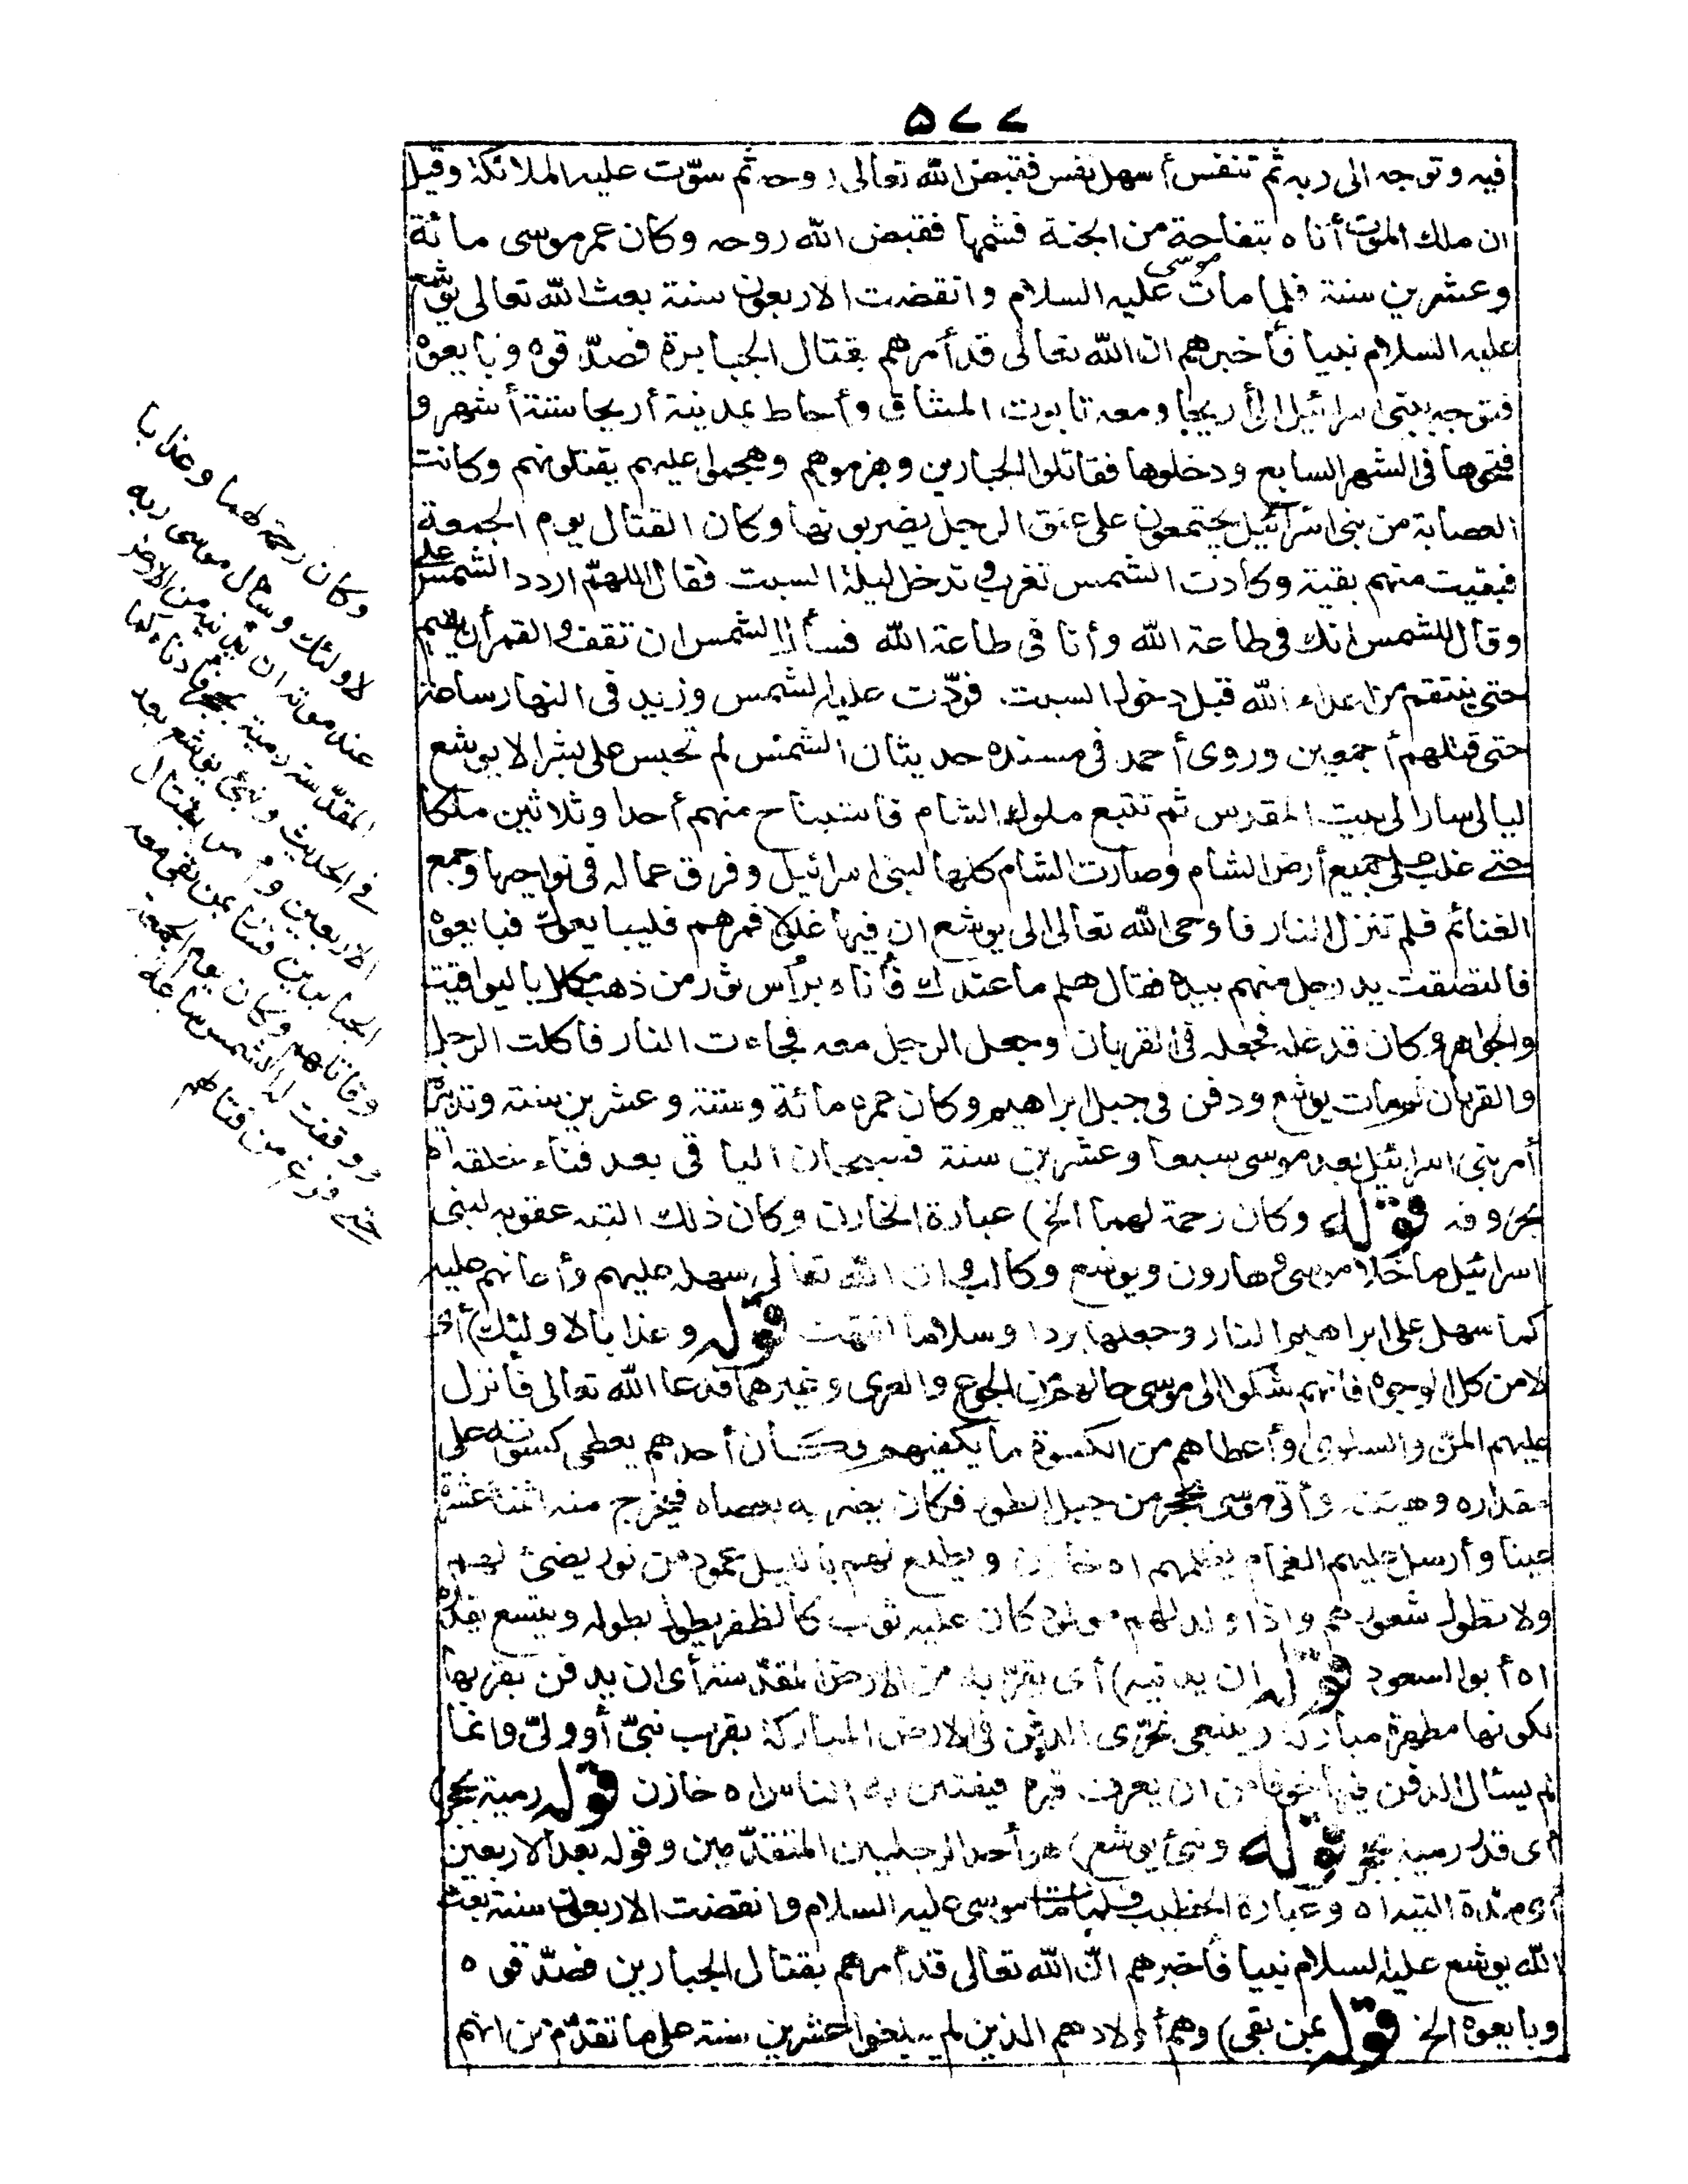 ۵۷۷
فيه وتوجه الى ربه ثم تنفس أسهل نفس فقبض الله تعالى روحه ثم سوّت عليه الملائكة وقيل
ان ملك الموت أتاه بتفاحة من الجنة فشمها فقبض الله روحه وكان عمر موسى مائة
وعشرين سنة فلما مات موسى عليه السلام وانقضت الاربعون سنة بعث الله تعالى يوشع
عليه السلام نبيا فأخبرهم ان الله تعالى قد أمرهم بقتال الجبابرة فصدّقوه وبايعوه
فتوجه ببنى اسرائيل الى أريحا ومعه تابوت الميثاق وأحاط بمدينة أريحا ستة أشهر و
فتحوها فى الشهر السابع ودخلوها فقاتلوا الجبارين وهزموهم وهجموا عليهم يقتلونهم وكانت
العصابة من بنى اسرائيل يجتمعون على عنق الرجل يضربونها وكان القتال يوم الجمعة
فبقيت منهم بقية وكادت الشمس تغرب وتدخل ليلة السبت فقال اللهم اردد الشمس علي
وقال للشمس انك فى طاعة الله وأنا فى طاعة الله فسأل الشمس ان تقف والقمر أن يقيم
حتى ينتقم من اعداء الله قبل دخول السبت فردّت عليه الشمس وزيد فى النهار ساعة
حتى قتلهم أجمعين وروى أحمد فى مسنده حديث ان الشمس لم تحبس على بشر الا ليوشع
ليالى سار الى بيت المقدس ثم تتبع ملوك الشام فاستباح منهم أحدا وثلاثين ملكا
حتى غلب على جميع أرض الشام وصارت الشام كلها لبنى اسرائيل وفرق عماله فى نواحيها وجمع
الغنائم فلم تنزل النار فاوحى الله تعالى الى يوشع ان فيها غلولا فمرهم فليبايعوك فبايعوه
فالتصقت يد رجل منهم بيده فقال هلم ما عندك فأتاه برأس ثور من ذهب مكلل باليواقيت
والجواهر وكان قد غله فجعله فى القربان وجعل الرجل معه فجاءت النار فاكلت الرجل
والقربان ثم مات يوشع ودفن فى جبل ابراهيم وكان عمره مائة وستة وعشرين سنة وتدبيره
أمر بنى اسرائيل بعد موسى سبعا وعشرين سنة فسبحان الباقى بعد فناء خلقه اه
بحروفه قوله وكان رحمة لهما الخ) عبارة الخازن وكان ذلك التيه عقوبة لبنى
اسرائيل ما خلا موسى وهارون ويوشع وكالب وان الله تعالى سهل عليهم وأعانهم عليه
كما سهل على ابراهيم النار وجعلها بردا وسلاما انتهت قوله وعذابا لاولئك) أى
لا من كل الوجوه فانهم شكوا الى موسى حالهم من الجوع والعرى وغيرهما فدعا الله تعالى فأنزل
عليهم المنّ والسلوى وأعطاهم من الكسوة ما يكفيهم وكان أحدهم يعطى كسوته على
مقداره وهيئته وأتى موسى بحجر من جبل الطور فكان يضربه بعصاه فيخرج منه اثنتا عشرة
عينا وأرسل عليهم الغمام يظلهم اه خازن ويطلع لهم بالليل عمود من نور يضئ لهم
ولا تطول شعورهم واذا ولد لهم مولود كان عليه ثوب كالظفر يطول بطوله ويتسع بقدره
اه أبو السعود قوله ان يدنيه) أى يقرّبه من الارض المقدّسة أى ان يدفن بقربها
لكونها مطهرة مباركة وينبغى تحرّى الدفن فى الارض المباركة بقرب نبىّ أو ولىّ وانما
لم يسئال الدفن فيها خوفا من ان يعرف قبره فيفتتن به الناس اه خازن قوله رمية بحجر)
أى قدر رمية بحجر قوله ونبئ يوشع) هو أحد الرجلين المتقدّمين وقوله بعد الاربعين
أى مدّة التيه اه وعبارة الخطيب فلما مات موسى عليه السلام وانقضت الاربعون سنة بعث
الله يوشع عليه السلام نبيا فأخبرهم انّ الله تعالى قد أمرهم بقتال الجبارين فصدّقوه
وبايعوه الخ قوله بمن بقى) وهم أولادهم الذين لم يبلغوا عشرين سنة على ما تقدّم من انهم
وكان رحمة لهما وعذابا
لاولئك وسأل موسى ربه
عند موته ان يدنيه من الارض
المقدّسة رمية بحجر فأدناه كما
فى الحديث ونبئ يوشع بعد
الاربعين وأمر بقتال
الجبارين فسار بمن بقى معه
وقاتلهم وكان يوم الجمعة
ووقفت له الشمس ساعة
حتى فرغ من قتالهم